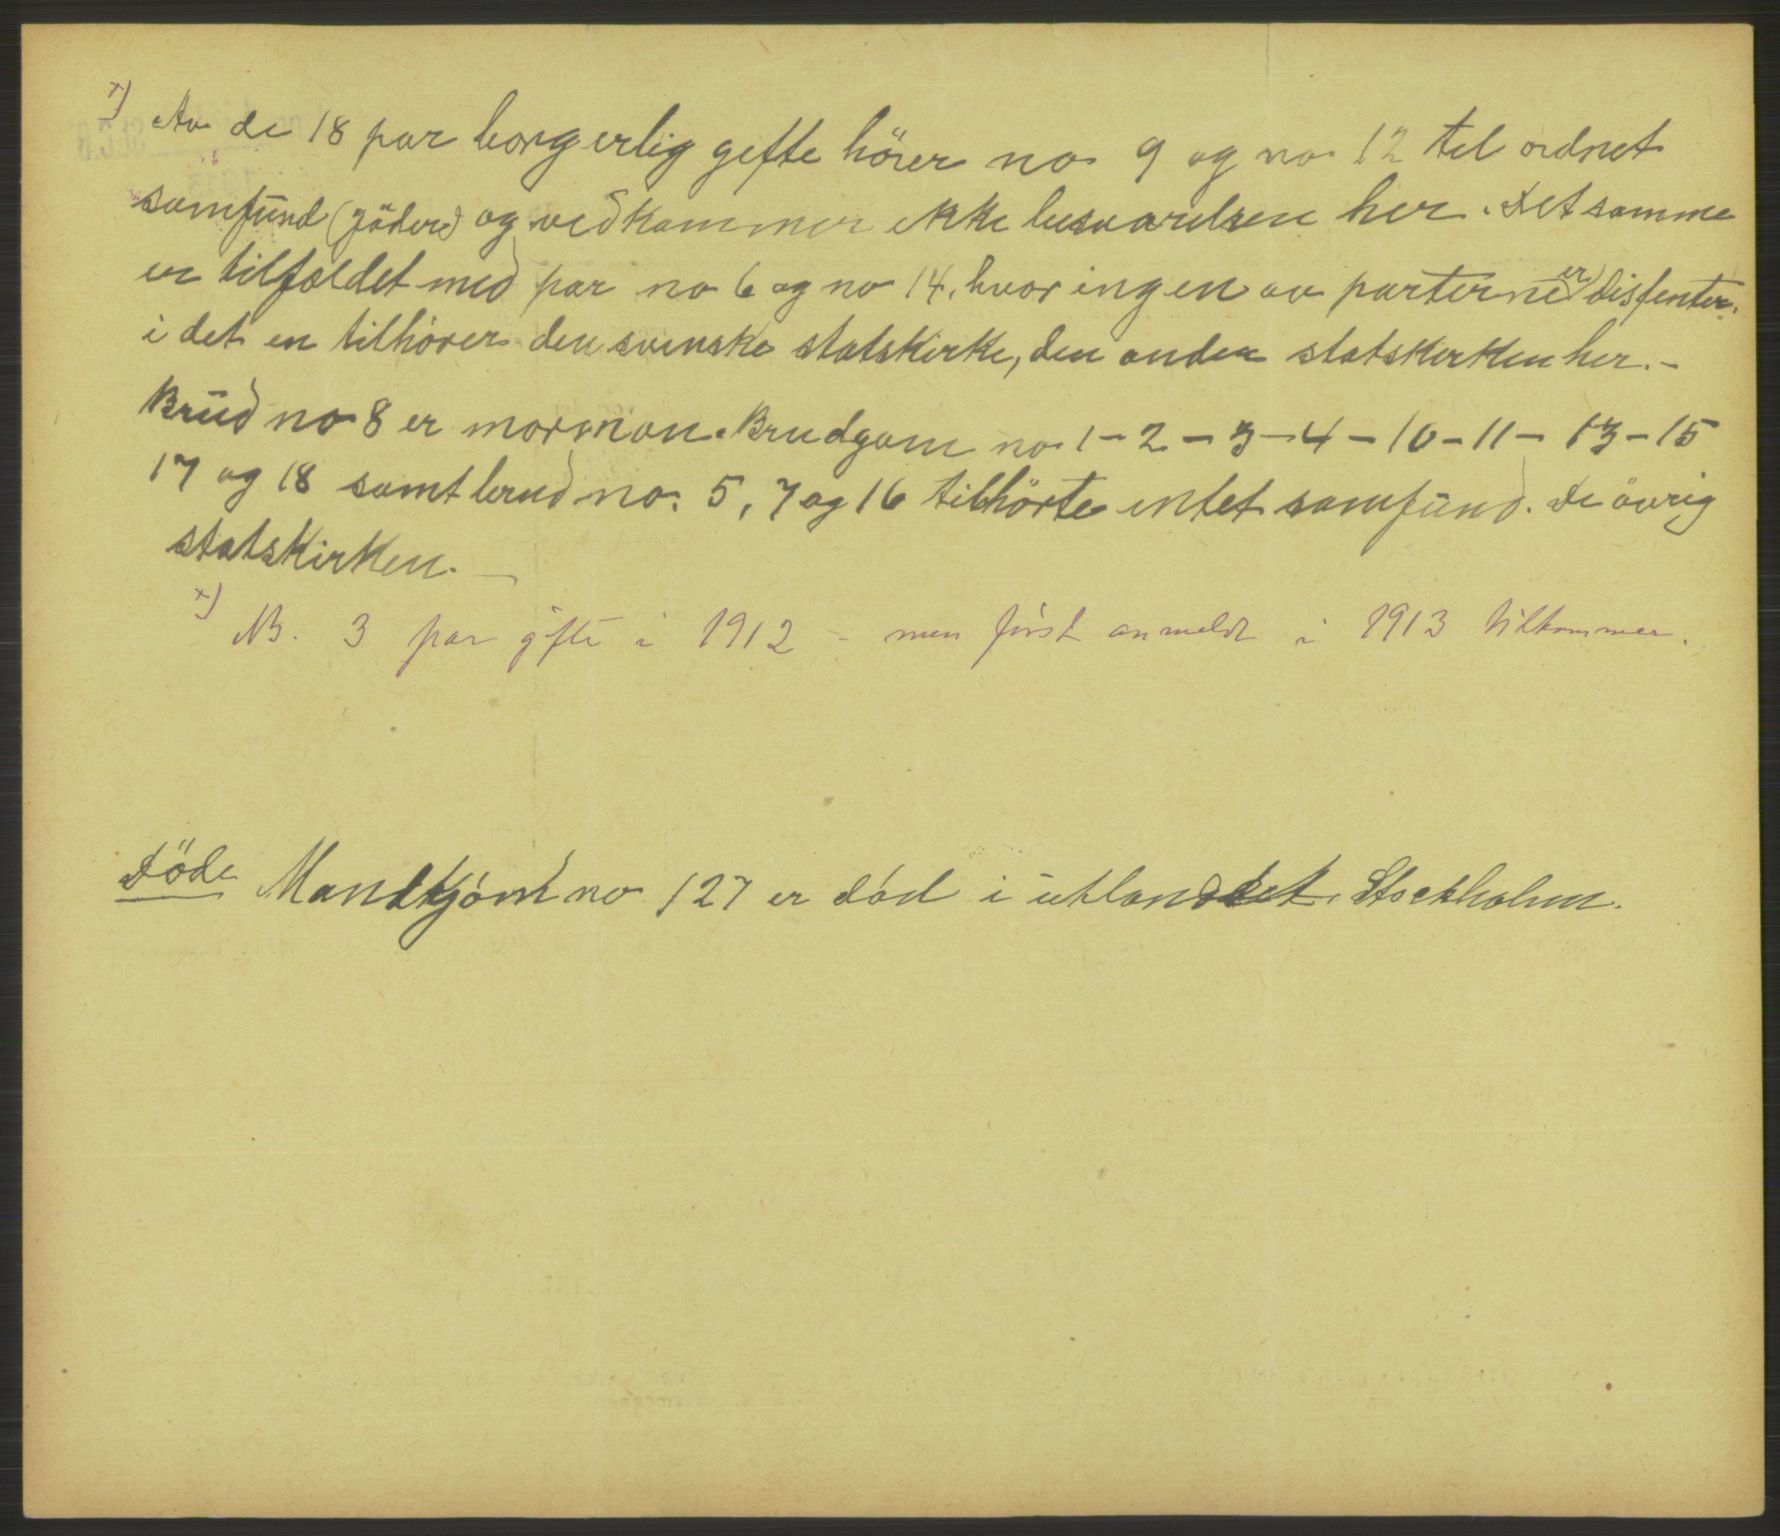 x) Av de 18 par borgerlig gifte hörer no 9 og no 12 til ordnet
samfund (jöder) og vedkommer ikke besvarelsen her. Det samme
er tilfældet med par no 6 og no 14, hvor ingen av parterne er disfenter.
i det en tilhörer den svenske statskirke, den anden statskirken her. –
Brud no 8 er mormon. Brudgom no 1 – 2 – 3 – 4 – 10 – 11 – 13 – 15
17 og 18 samt brud no. 5, 7 og 16 tilhörte intet samfund. De övrig
statskirken. –
x) NB. 3 par gifte i 1912 – men först anmeldt i 1913 tilkommer.
Döde Mandkjönd no 127 er död i utlandet, Stockholm.